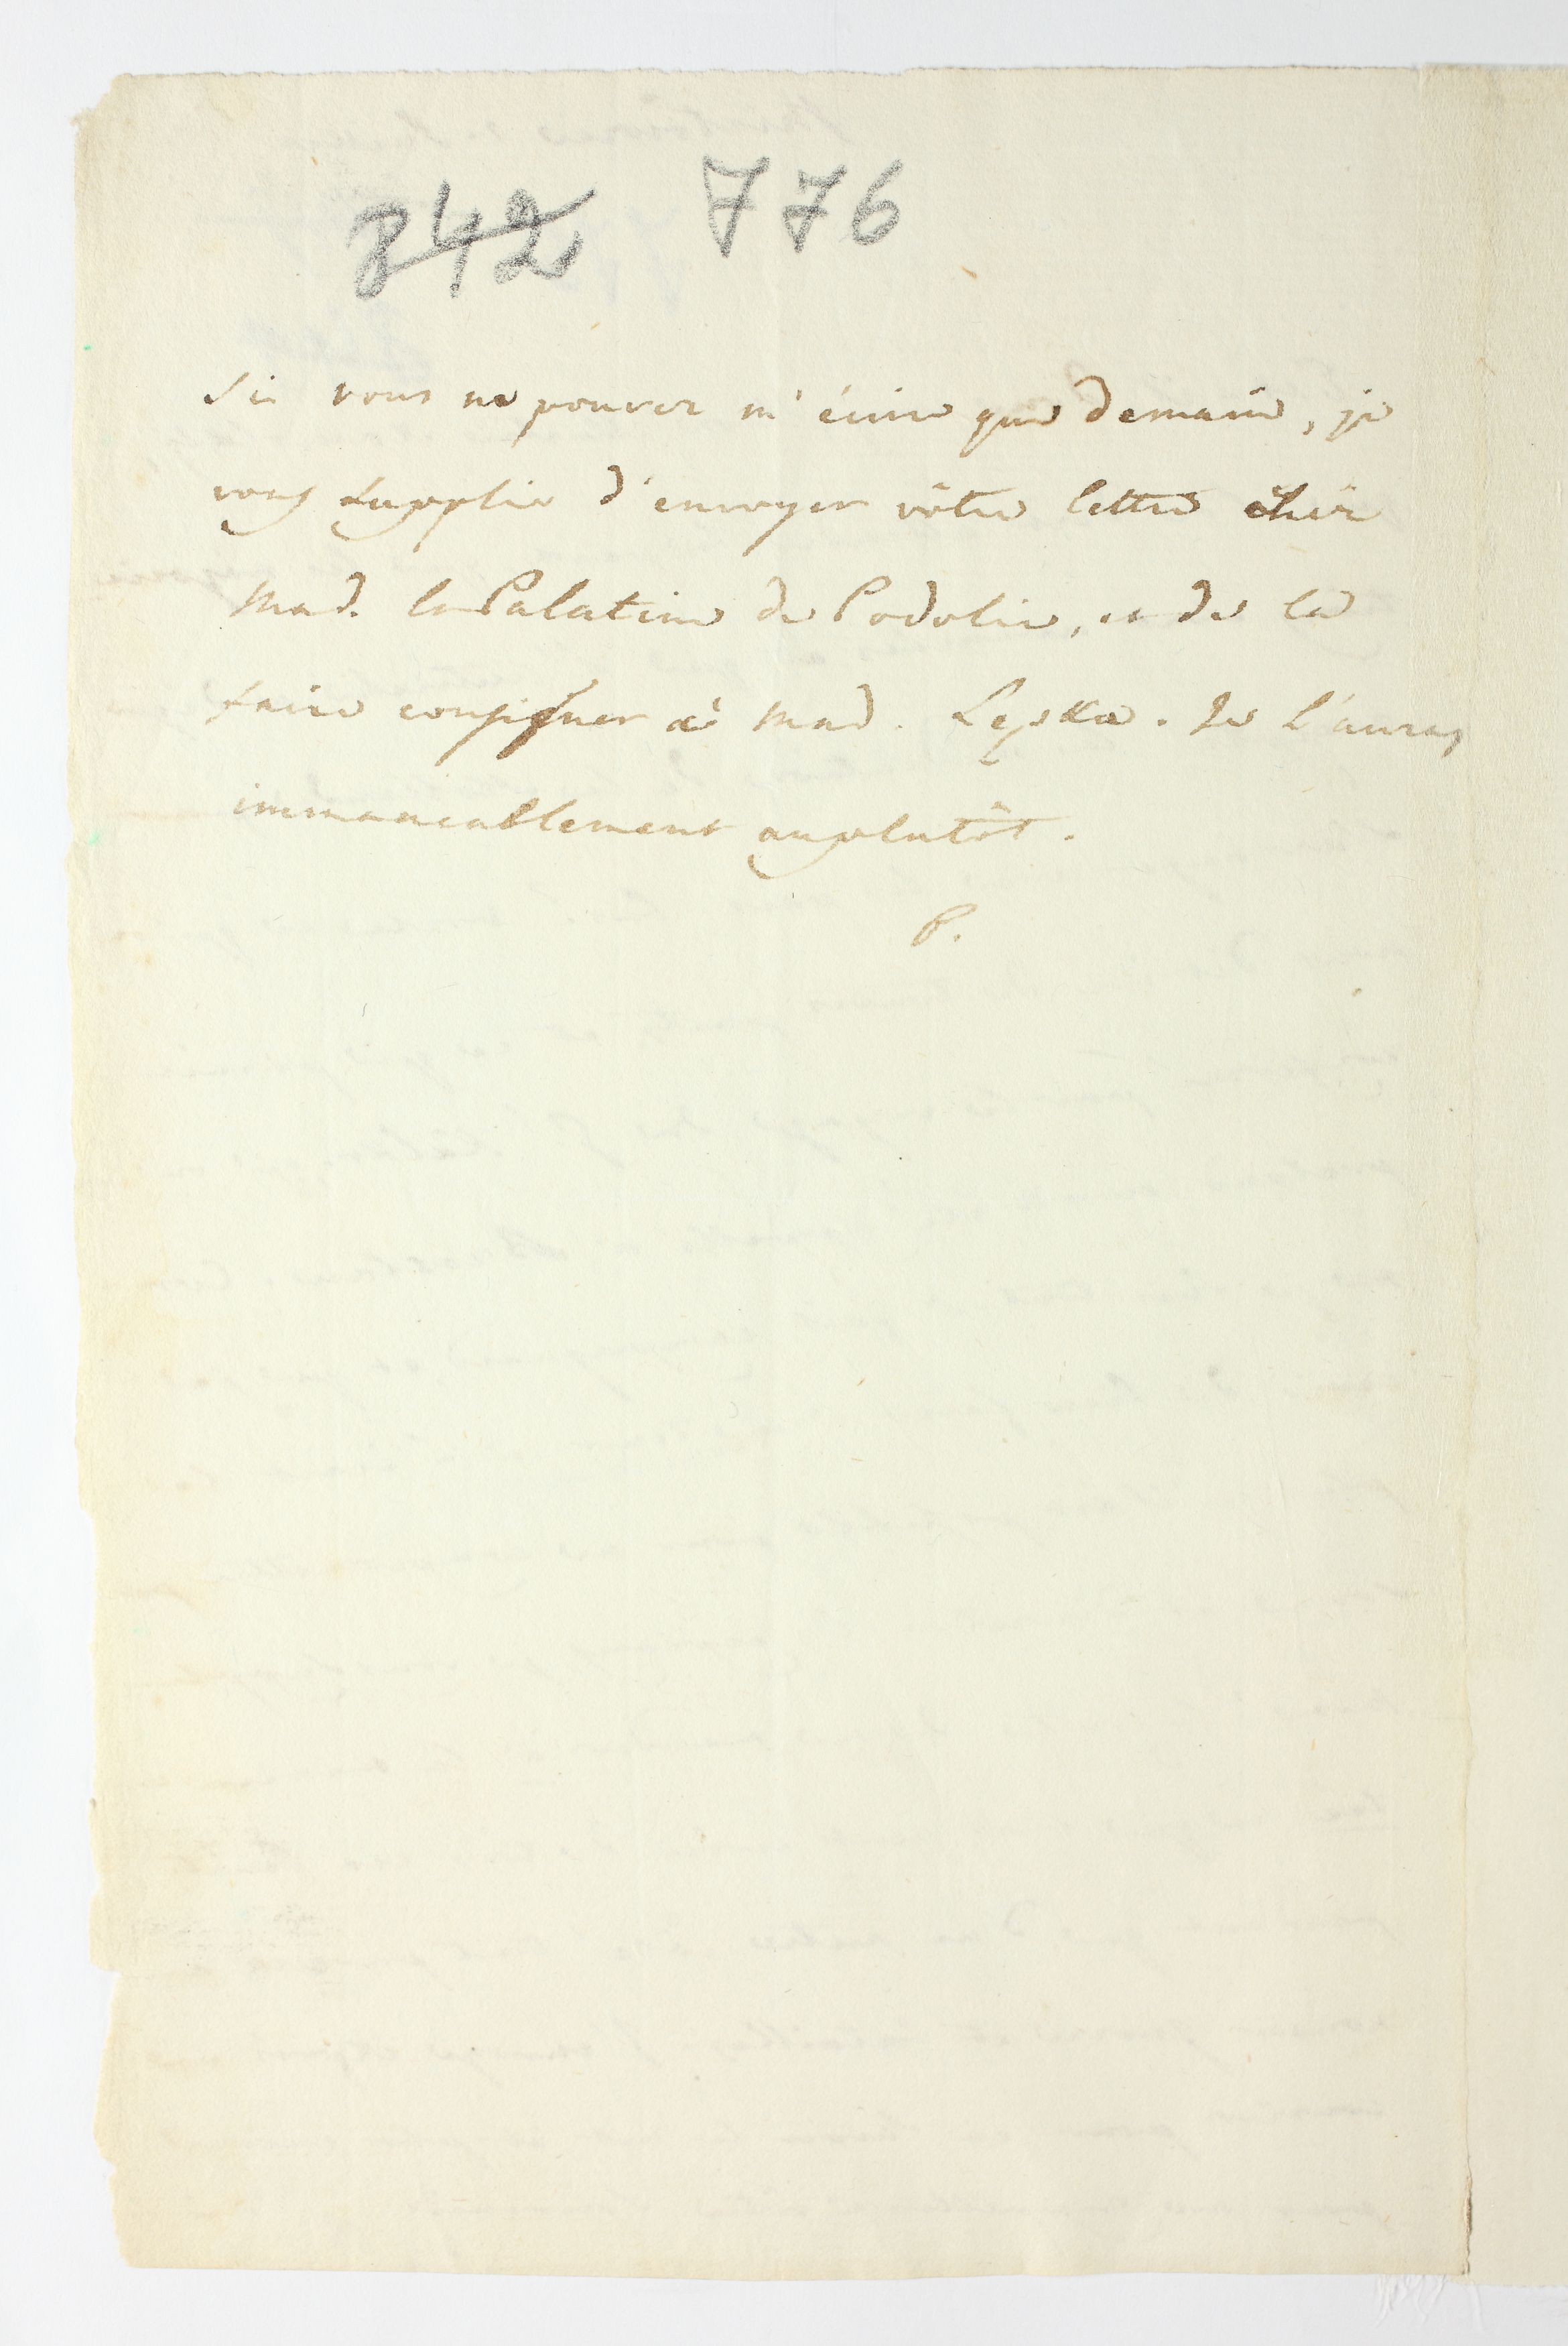 842 776
Si vous ne pouvez m'écrire que demain, je
vous supplie d'envoyer vôtre lettre chez
Mad. la Palatine de Podolie, et de la
faire consigner à Mad. Lęska. Je l'auray
immancablement auplutôt.
P.